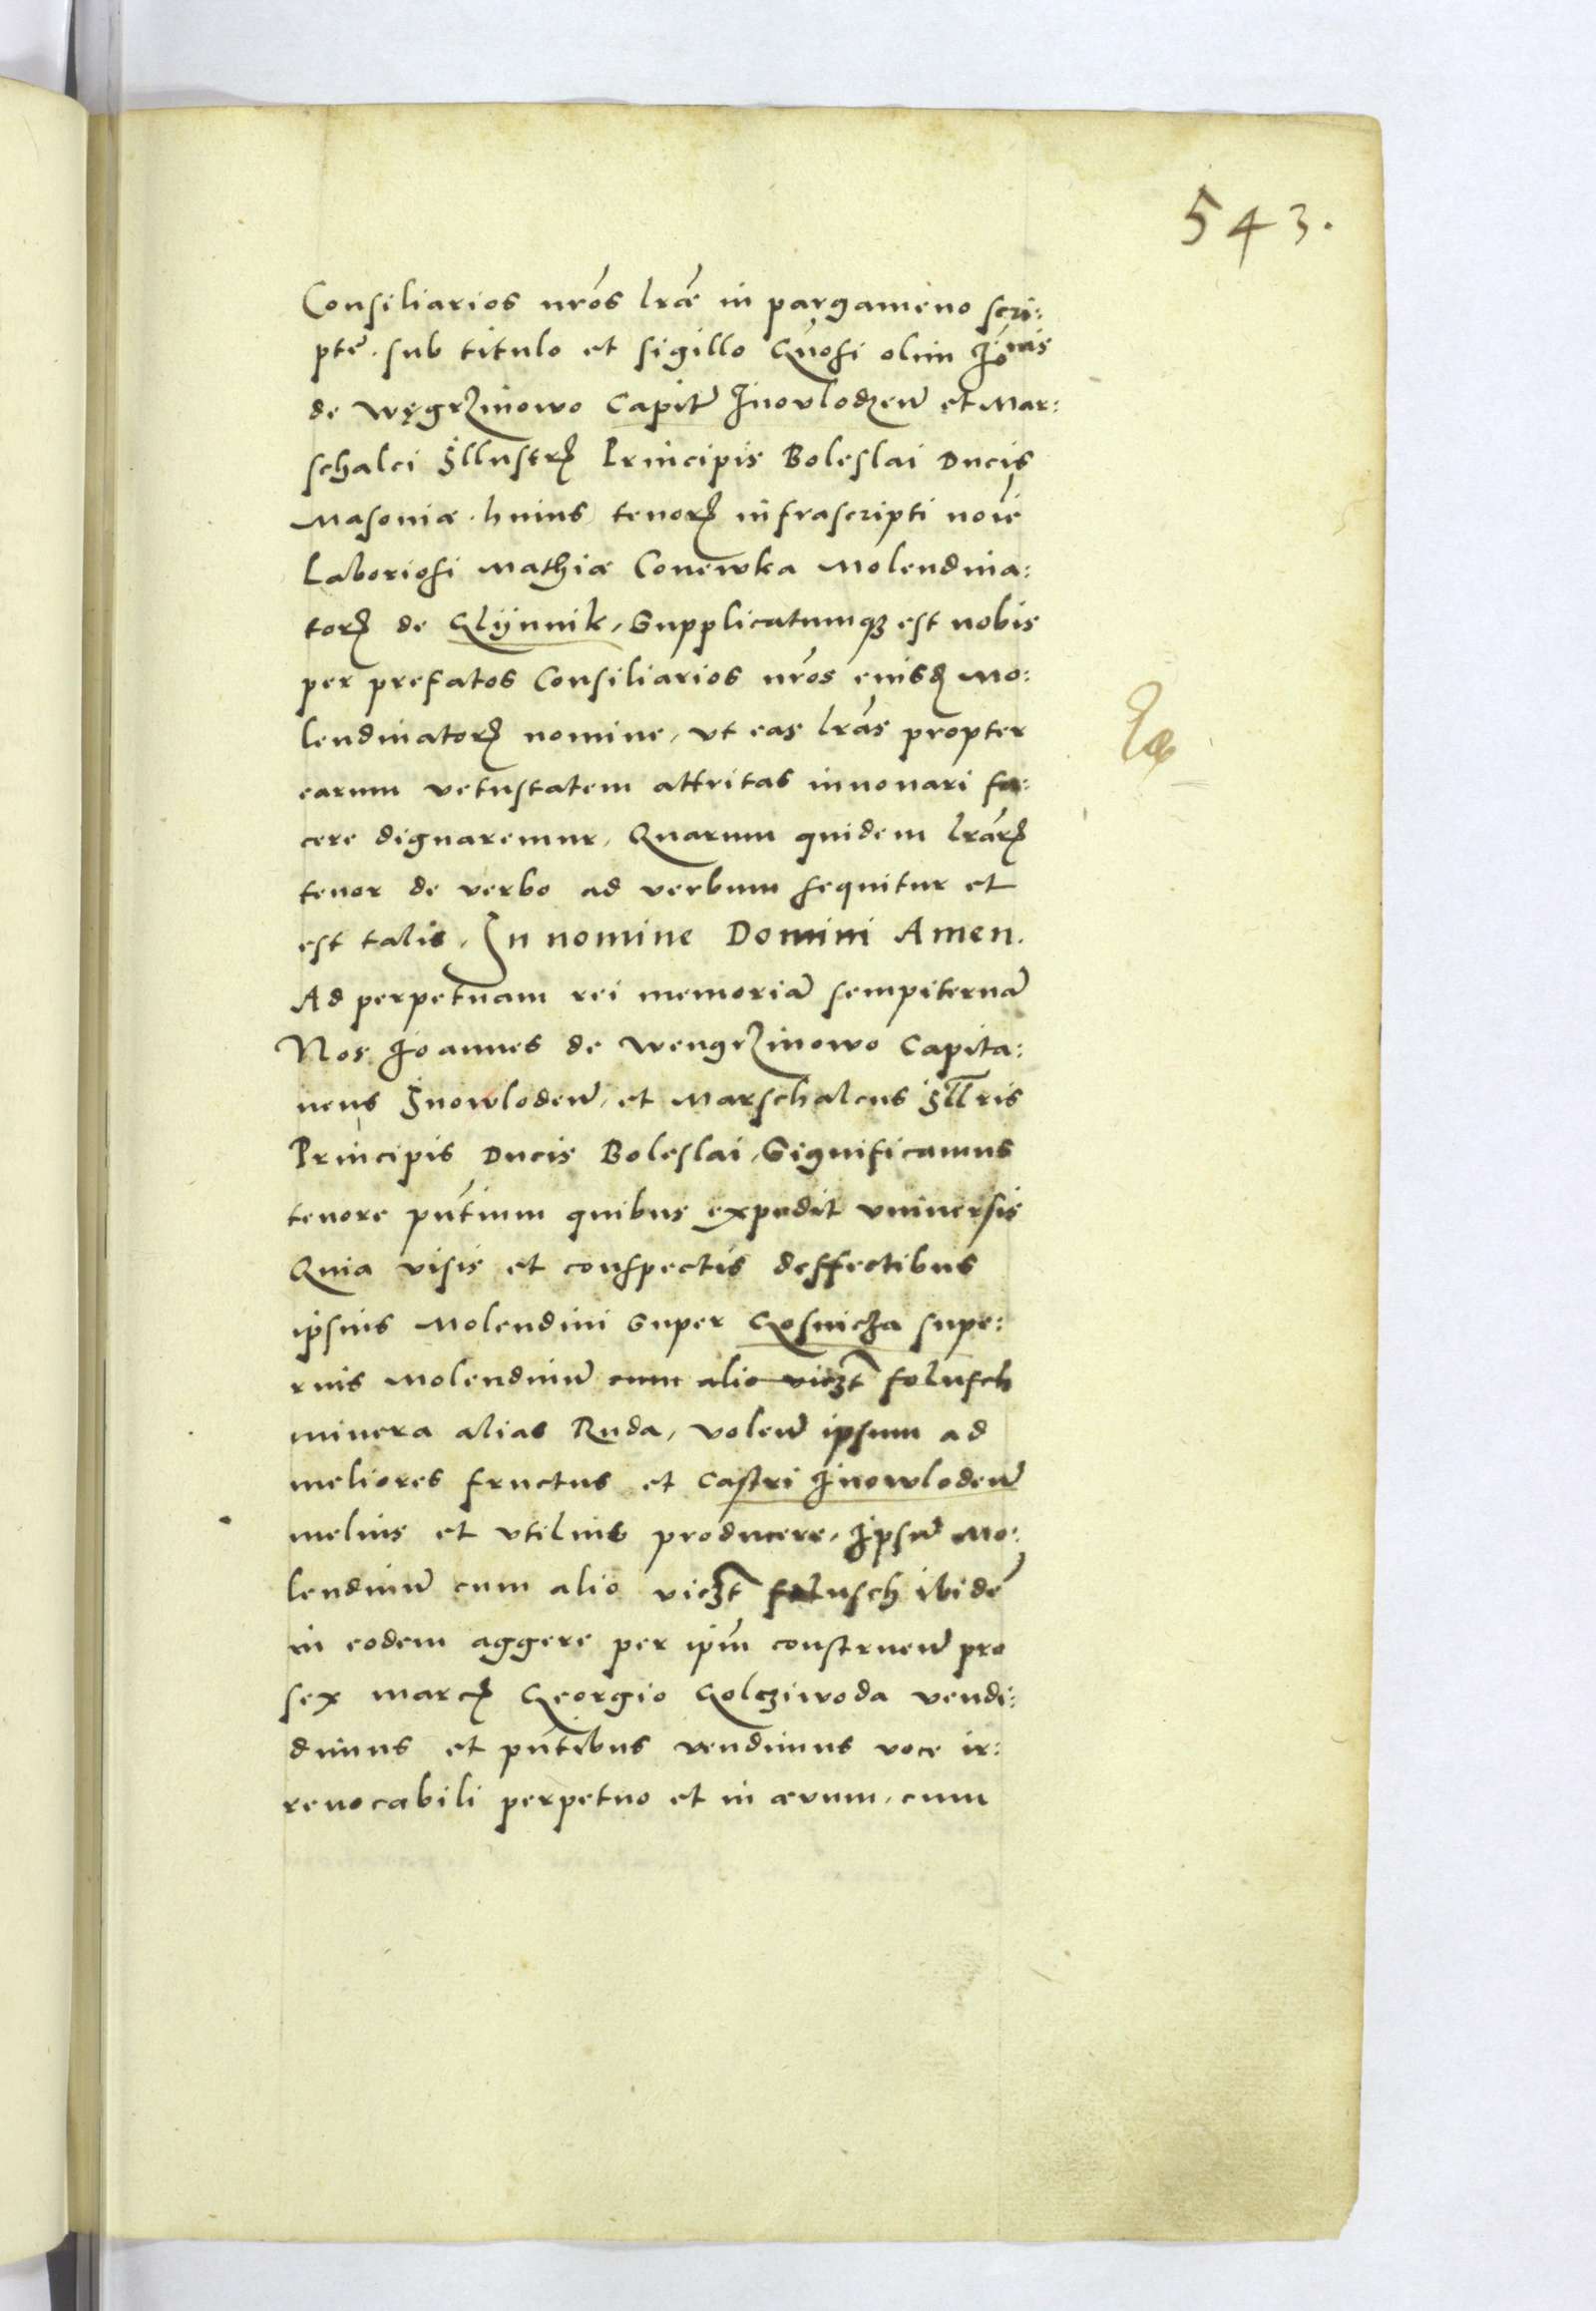 543.
Consiliarios nr̃os lrãe in pargameno scri:
ptẽ. sub titulo et sigillo Gn̄osi olim Io̅nis
de Węgrzinowo Capitn̄ Inovlodzen̄ et Mar:
schalci Illustrꝭ Principis Boleslai Ducis
Masoniæ. huius tenorꝭ infrascripti noĩe
Laboriosi Mathiæ Conewka Molendina:
torꝭ de Glÿnnik, Supplicatumqꝫ est nobis
per prefatos Consiliarios nr̃os eiusdꝭ Mo:
lendinatorꝭ nomine, vt eas lrãs propter
earum vetustatem attritas innouari fa:
cere dignaremur, Quarum quidem lrãrꝭ
tenor de verbo ad verbum sequitur et
est talis, In nomine Domini Amen.
Ad perpetuam rei memoriã sempiternã
Nos Ioannes de Wengrzinowo Capita:
neus Inowloden̄, et Marschalcus Ill̃ris
Principis Ducis Boleslai, Significamus
tenore pñtium quibus expedit vniuersis
Quia visis et conspectis deffectibus
ipsius Molendini super Gosnicza supe:
rius Molendinũ cum alio viczt̃ folusch
minera alias Ruda, volen̄ ipsum ad
meliores fructus et Castri Inowloden̄
melius et vtilius producere, Ipsũ Mo:
lendinũ cum alio viczt̃ folusch ibidẽ
in eodem aggere per ip̃m construen̄ pro
sex marcꝭ Georgio Golcziwoda vendi:
dimus et pñtibus vendimus voce ir:
reuocabili perpetuo et in æuum, cum